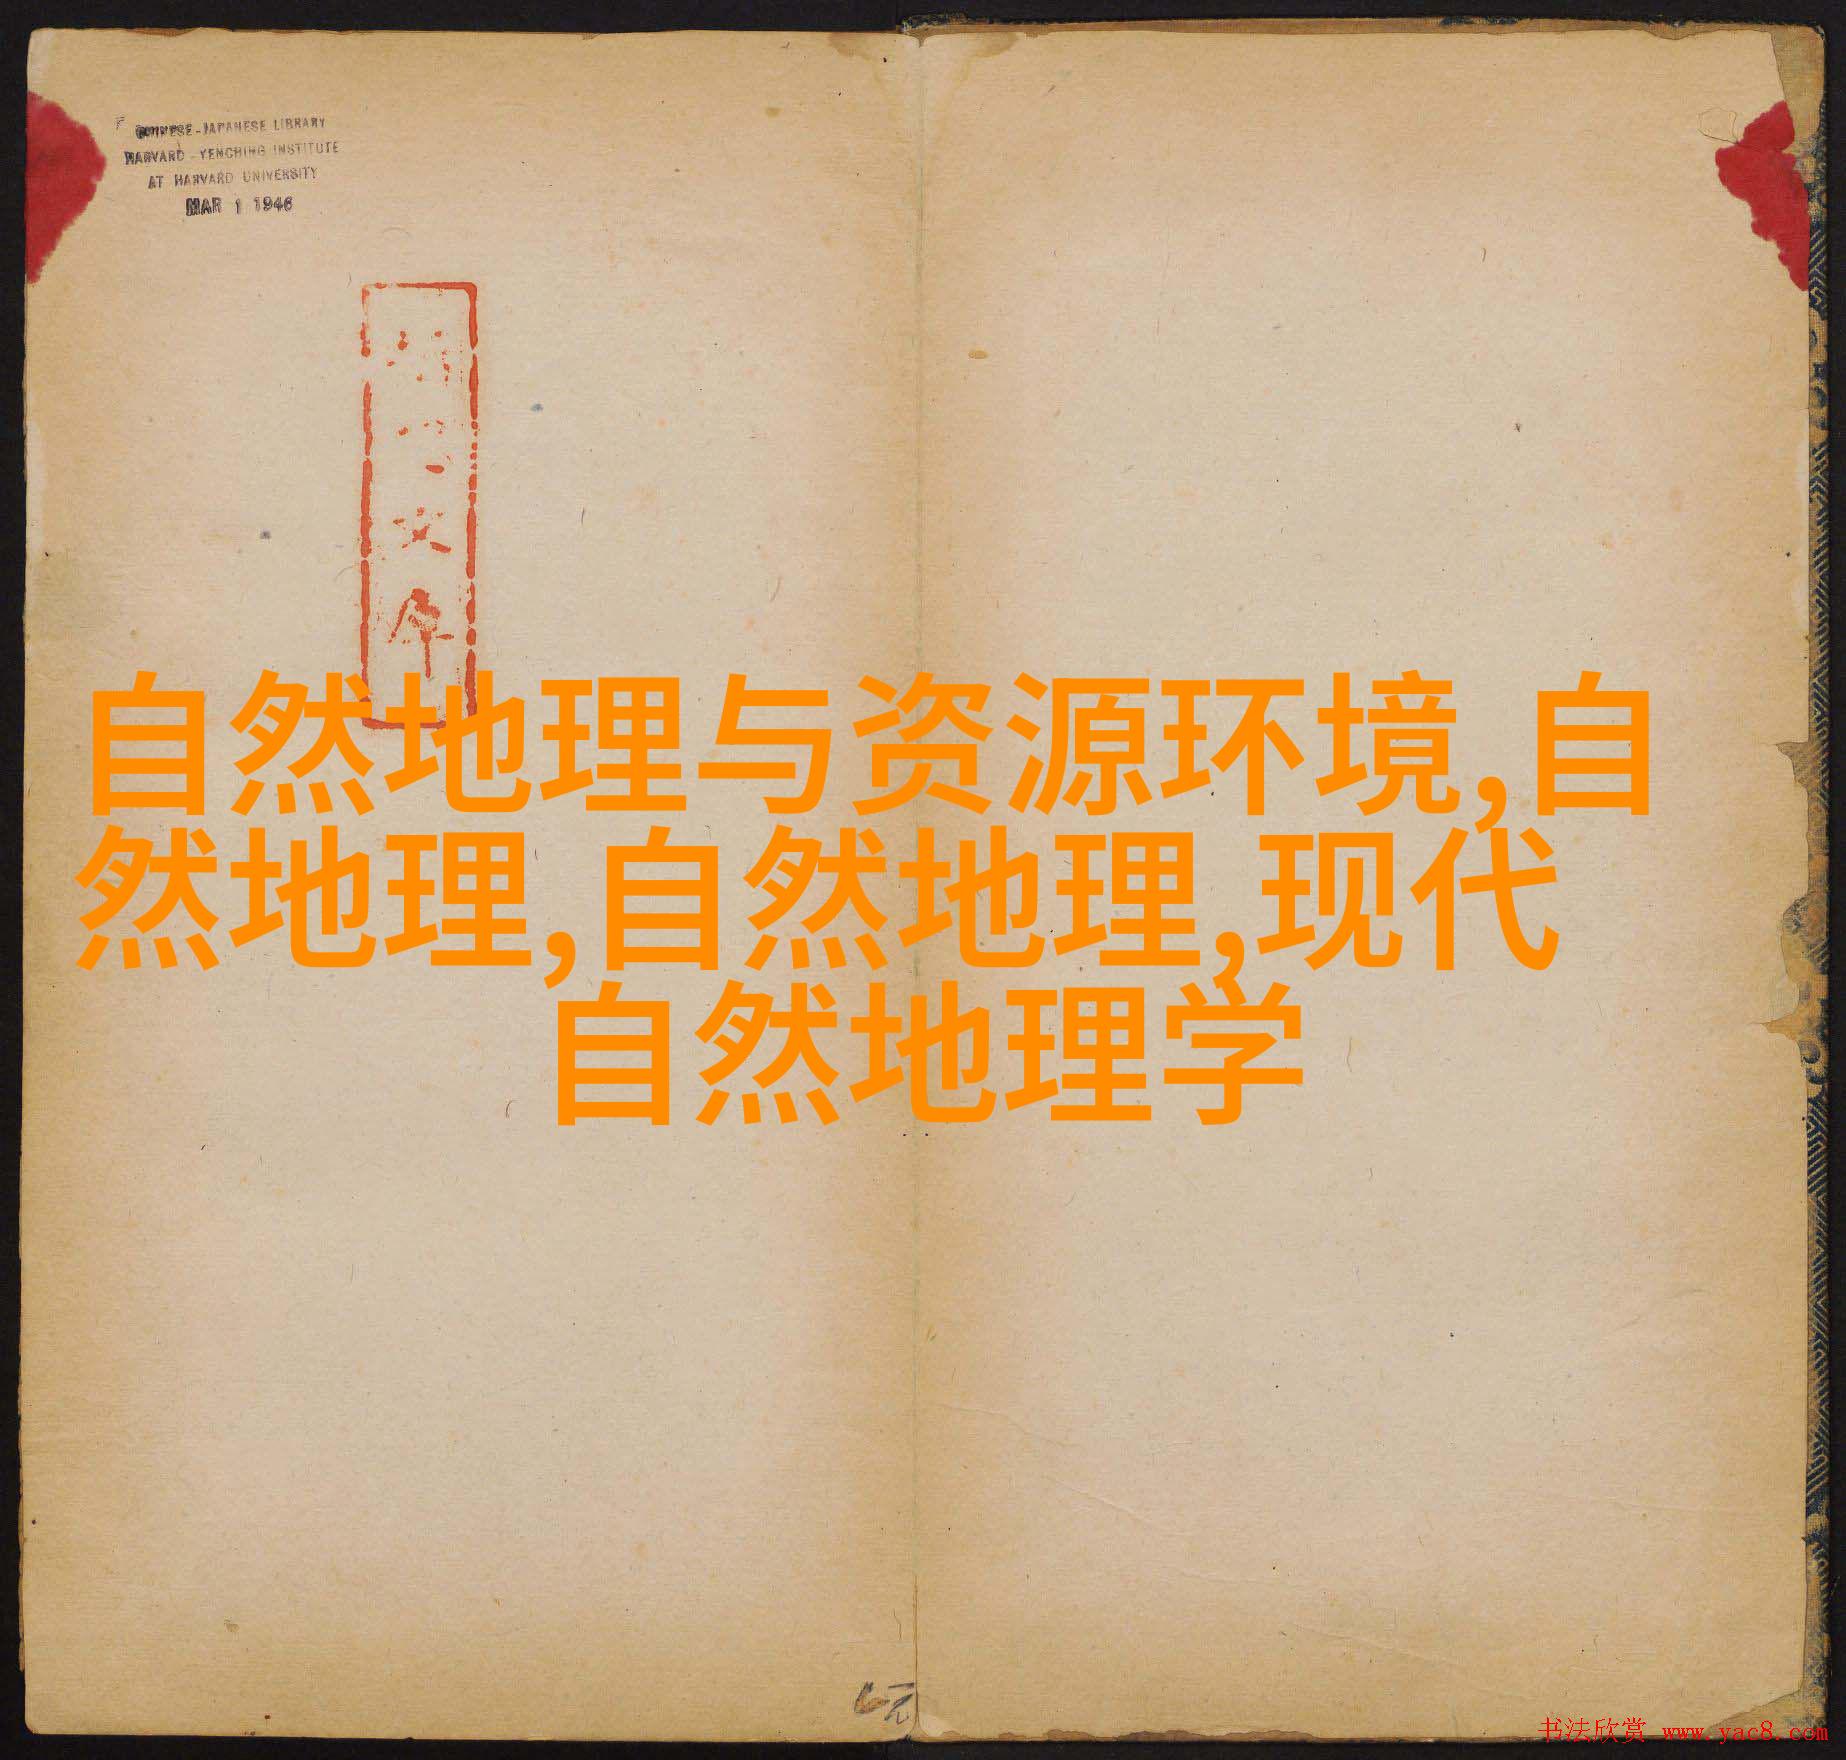 CHINESE-JAPANESE LIBRARY
HARVARD-YENCHING INSTITUTE
AT HARVARD UNIVERSITY
MAR 1 1946
自然地理与资源环境,自
然地理,自然地理,现代
自然地理学
书法欣赏 www.yac8.com